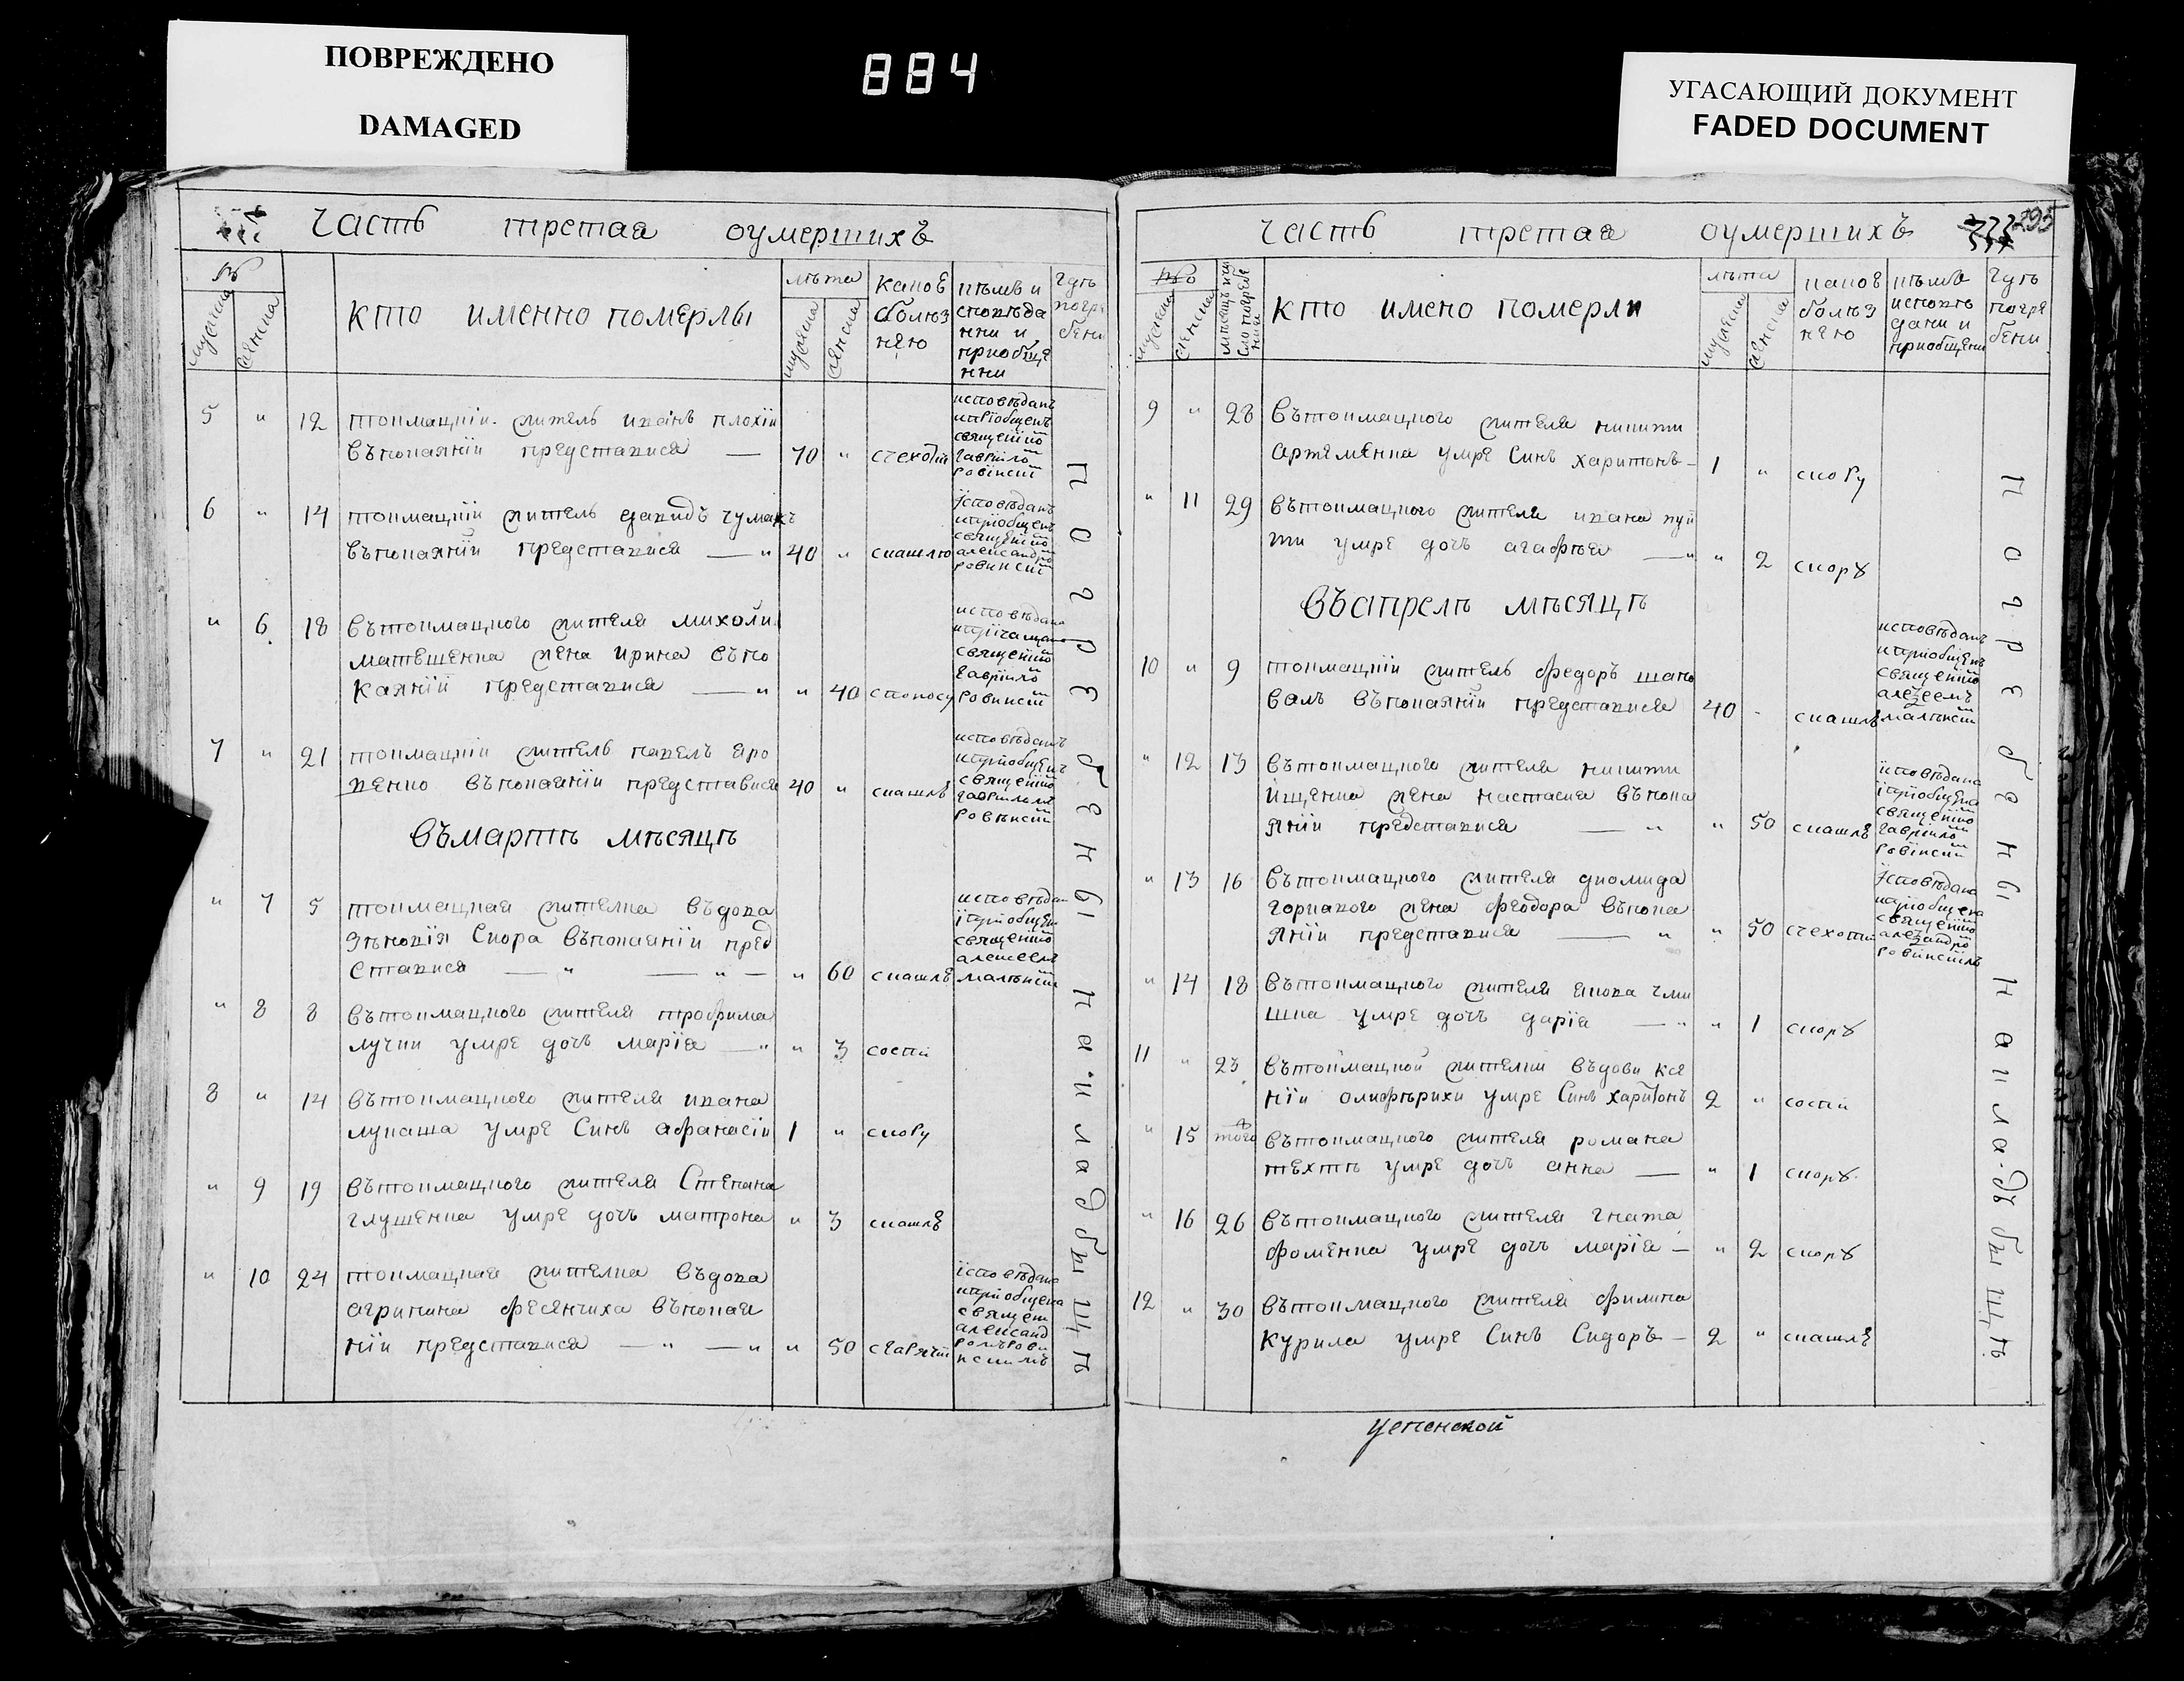 ПОВРЕЖДЕНО
DAMAGED
884
УГАСАЮЩИЙ ДОКУМЕНТ
FADED DOCUMENT
Часть третая оумершихъ
№
мужеска
женска
кто именно померлы
лѣта
мужеска
женска
какое
болѣз
нею
кѣмъ и
сповѣда
нни и
приобще
нни
гдѣ
погре
бени
5 " 12 токмацкій житель иванъ плохій
въпокаяніи представися — 70 " сгехоти
исповѣданъ
ипріобщенъ
священіко
гавріило
ровінскі
6 " 14 токмацкій житель давидъ чумакъ
въпокаяніи представися — " 40 " скашлю
Ісповѣданъ
ипріобщенъ
священіко
александро
ровинскі
" 6 18 вътокмацкого жителя михаила
матвшенка жена ирина въпо
каяніи представися — " " 40 споносу
исповѣдана
священіко
гавріило
ровинскі
7 " 21 токмацкій житель павелъ яро
венко въпокаяніи представися 40 " скашлѣ
исповѣданъ
ипріобщенъ
священіко
гавріиломъ
ровѣнскі
въмартѣ мѣсяцѣ
" 7 5 токмацкая жителка въдова
зѣновія скора въпокаяніи пред
ставися — " — " — " 60 скашлѣ
исповѣдан
іпріобщен
священіко
алексеемъ
малѣнскі
" 8 8 вътокмацкого жителя трофима
лучки умре дочь марія — " " 3 соспи
8 " 14 вътокмацкого жителя ивана
лукаша умре синъ афанасій 1 " скору
" 9 19 вътокмацкого жителя Степана
глушенка умре дочь матрона " 3 скашлѣ
" 10 24 токмацкая жителка въдова
агрипина фесенчиха въпокая
ніи представися — " — " " 50 сгарячки
ісповѣдана
ипріобщена
священ
александ
ромъ рови
нскимъ
Погребены на кладбыщѣ
Часть третая оумершихъ
295
№
мужеска
женска
мѣсяцъ ичи
сло погребе
ния
кто имено померли
лѣта
мужеска
женска
какое
болѣз
нею
кѣмъ
исповѣ
дани и
приобщени
гдѣ
погре
бени
9 " 28 вътокмацкого жителя никити
артеменка умре синъ харитонъ — 1 " скору
" 11 29 вътокмацкого жителя ивана куй
ти умре дочь агафѣя — " " 2 скорѹ
въапрелѣ мѣсяцѣ
10 " 9 токмацкій житель федоръ шапо
валъ въпокаяніи представися 40 - скашлѣ
исповѣданъ
ипріобщенъ
священіко
алеѯеемъ
малѣнскі
" 12 13 вътокмацкого жителя никити
йщенка жена настасия въпока
яніи представися — " " 50 скашлѣ
исповѣдана
іпріобщена
священіко
гавріило
ровінски
" 13 16 вътокмацкого жителя диомида
горпакого жена феодора въпока
яніи представися — " " 50 сгехоти
Ісповѣдана
ипріобщена
священіко
алеѯандро
ровінскімъ
" 14 18 вътокмацкого жителя якова чми
шка умре дочь дарія — " " 1 скорѹ
11 " 23 вътокмацкой жителки въдови кѣ
ніи олифѣрихи умре синъ харитонъ 2 " соспи
" 15 того вътокмацкого жителя романа
техтѣ умре дочь анна — " 1 скорѹ
" 16 26 вътокмацкого жителя гната
фоменка умре дочь марія — " 2 скорѹ
12 " 30 вътокмацкого жителя филипа
курила умре синъ сидоръ — 2 " скашлѣ
Погребены на кладъбыщѣ
успенской